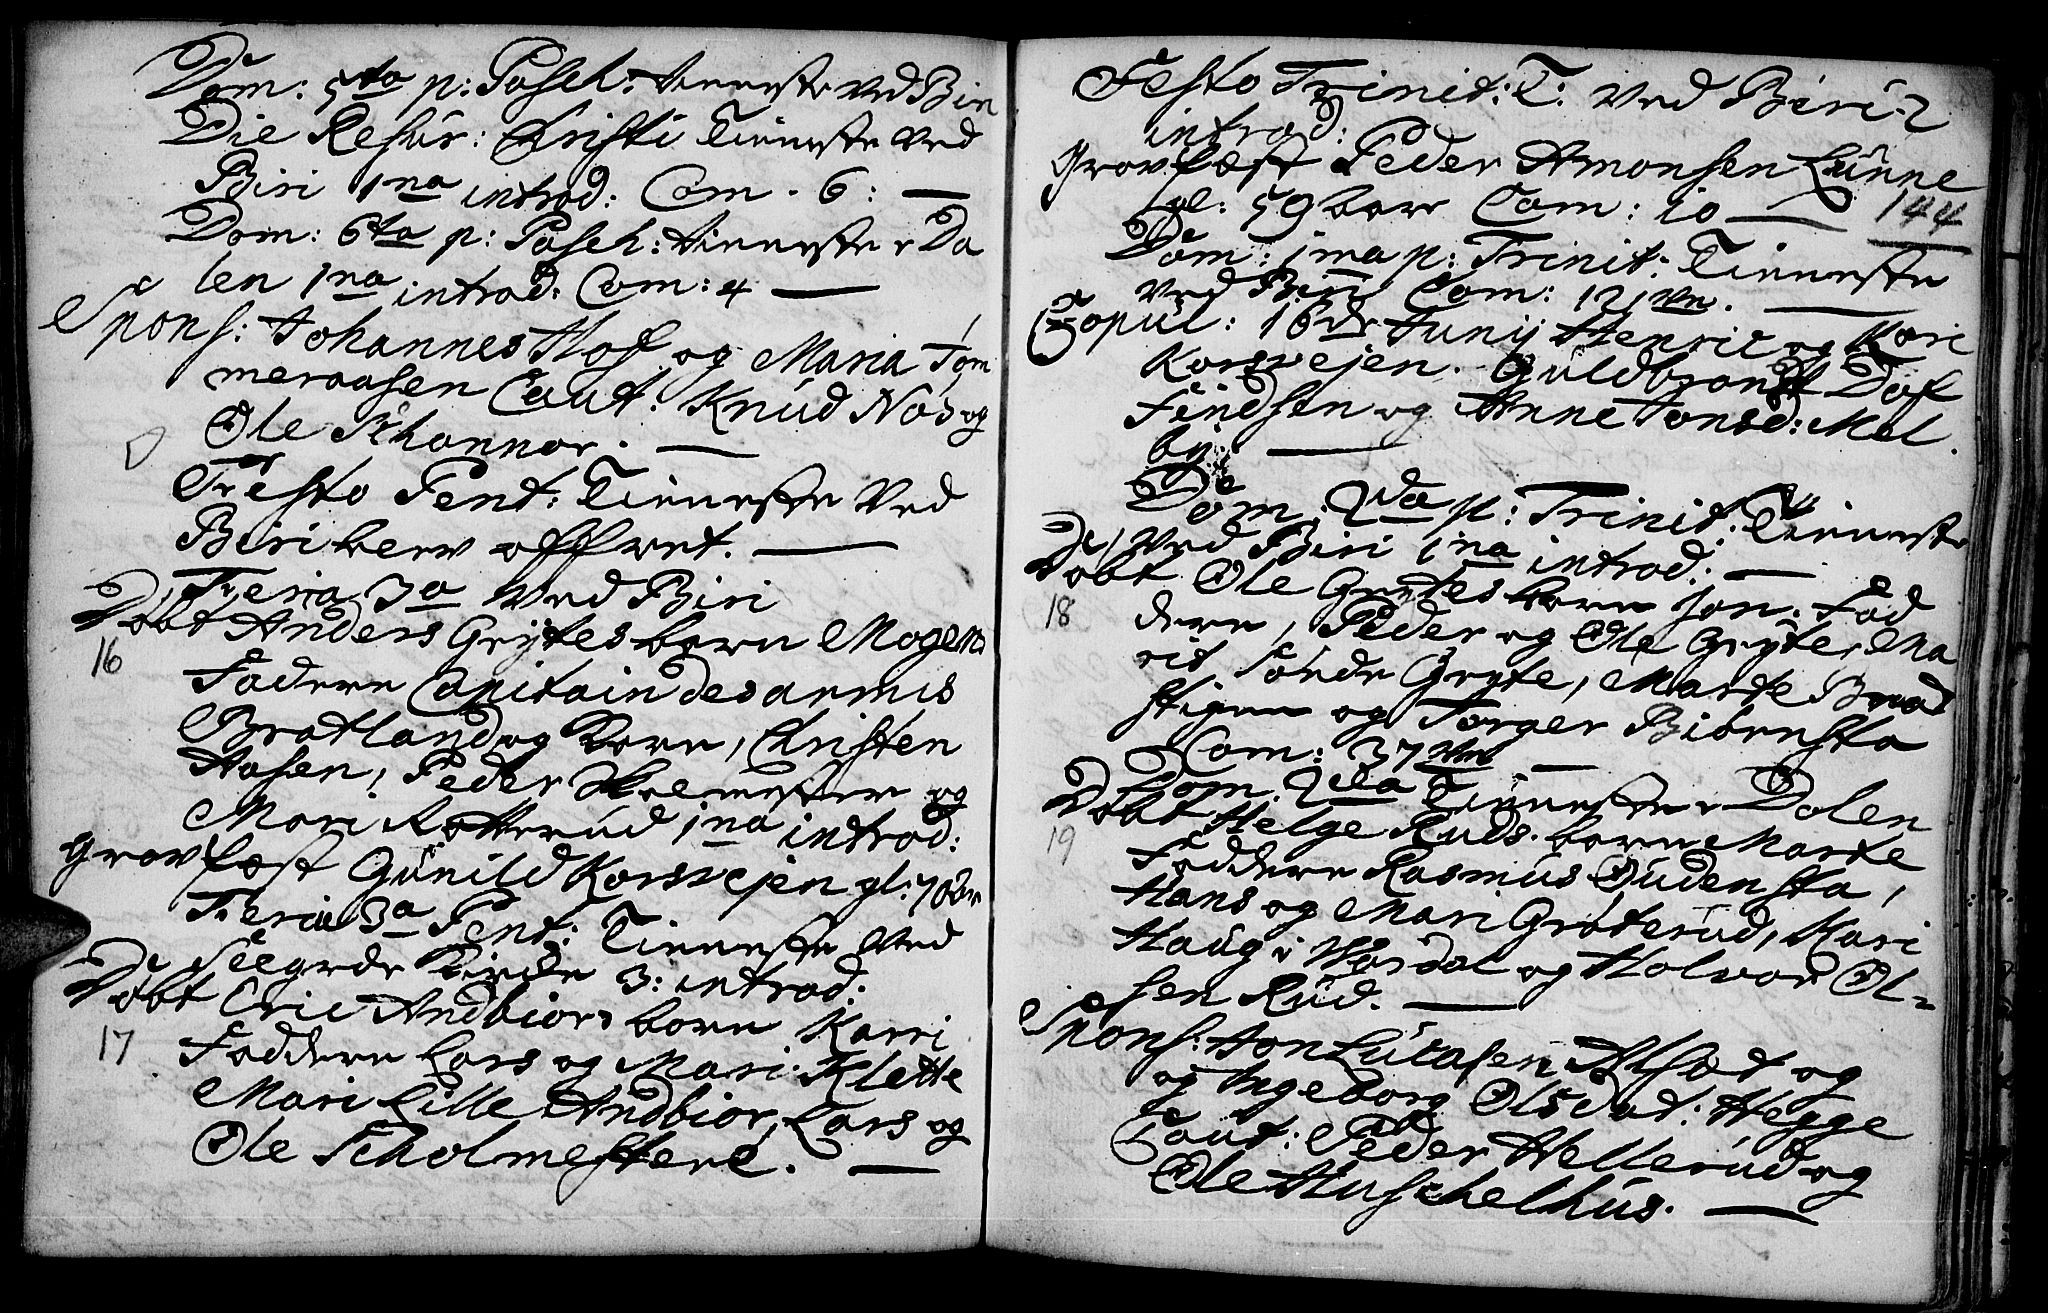 Dom: 5ta p: Pasch: Tienneste Ved Biri
Die Resur: Christi Tienneste Ved
Biri 1na introd: Com. 6: —
Dom: 6ta p: Pasch: Tienneste i Da
len 1na introd: Com: 4 —
Spons: Johannes Hof og Maria Tom
meraasen Caut: Knud Nos og
Ole
Festo Pent: Tienneste Ved
Biri blev offret. —
Feria 3a Ved Biri
Døbt Anders Grytes barn Mogens
16
Faderne Capitain des armis
Bratland og Kone, Christen
Aasen, Peder Skolemester og
Mari Rotterud 1na introd:
Grovfæst Gunild Korsvejen gl: 70 år
Feria 3a Pent: Tienneste Ved
Seegrde Kirche 3: introd:
Døbt Eric Andbiørs barn Karri
17
Faddere Lars og Mari Klette
Mari Lille Andbiør, Lars og
Ole Scholmestere. —
Festo Trinit: T: Ved Biri 2
introd:
Grovfæst Peder Amonsen Lunne
gl: 59 Com: 10 —
144
Dom: 1ma p: Trinit: Tienneste
Ved Biri Com: 121 —
Copul: 16de Junij Henric og Kari
Korsvejen. Guldbrand Dof
Findsen og Anne Jonsd: Mel
by. —
Dom: 2da p: Trinit: Tienneste
Ved Biri 1na introd: —
Døbt Ole Grytes barn Jon. Fad
18
dere, Peder og Ole Gryte, Ma
rit Søndr Gryte, Marte Braa
stigen og Torger Biørnsta
Com: 37 —
Dom. 2da Tienneste i Dalen
Døbt Helge Ruds barn Marte
19
Faddere Rasmus Oudensta,
Hans og Mari Grøterud, Kari
Haug i Vardal og Halvor Ol-
sen Rud. —
Spons: Jon Lucasen Alsæt og
og Ingeborg Olsdat: Hegge
Caut: Peder Hellerud og
Ole Huschelhus. —